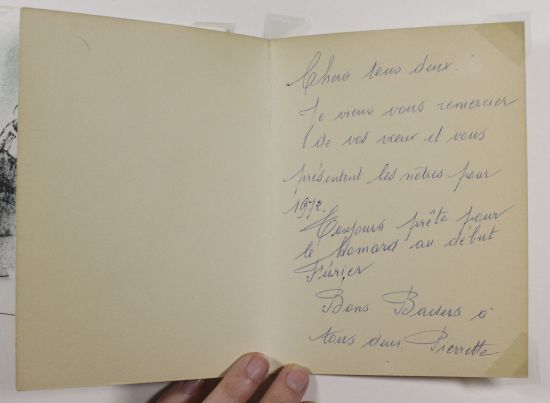 Chers tous deux.
Je viens vous remercier
de vos vœux et vous
présentent les nôtres pour
1972.
Toujours prête pour
le Homard au début
Février
Bons Baisers à
tous deux. Pierrette.